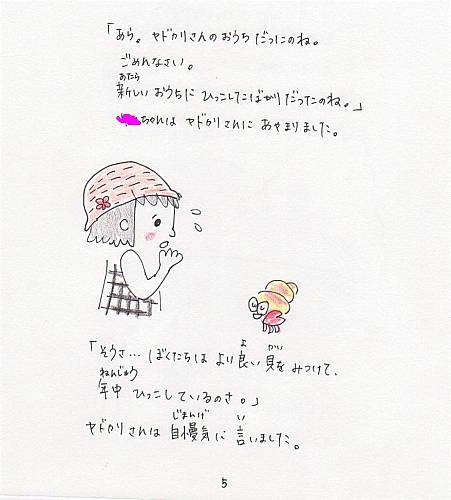 「あら。ヤドカリさんのおうちだったのね。
ごめんなさい。
あたら
新しいおうちにひっこしたばかりだったのね。」
ちゃんはヤドカリさんにあやまりました。
「そうさ…ぼくたちはより良い貝をみつけて、
よ かい
ねんじゅう
年中ひっこしているのさ。」
じまんげ い
ヤドカリさんは自慢気に言いました。
5